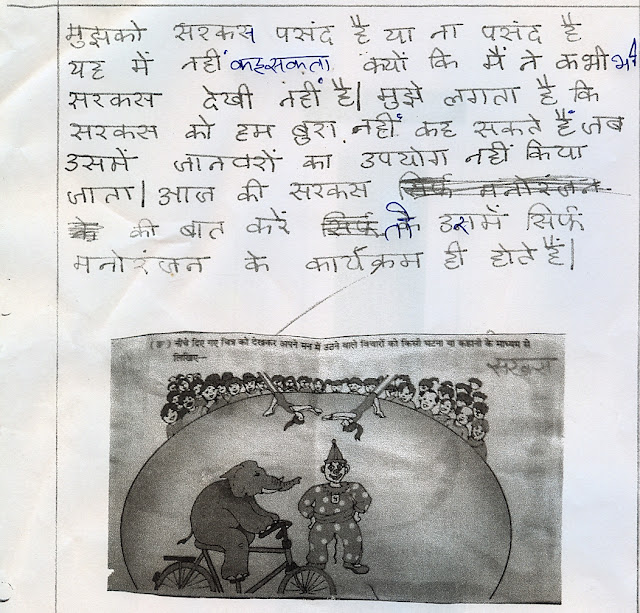 मुझको सरकस पसंद है या ना पसंद है
यह में नहीं कहसकता क्यों कि मैं ने कभी भी
सरकस देखी नहीं है। मुझे लगता है कि
सरकस को हम बुरा नहीं कह सकते हैं जब
उसमें जानवरों का उपयोग नहीं किया
जाता। आज की सरकस सिर्फ मनोरंजन
के की बात करें सिर्फ तो उसमें सिर्फ
मनोरंजन के कार्यक्रम ही होते हैं।
(ङ) नीचे दिए गए चित्र को देखकर अपने मन में उठने वाले विचारों को किसी घटना या कहानी के माध्यम से
लिखिए—
सरकस